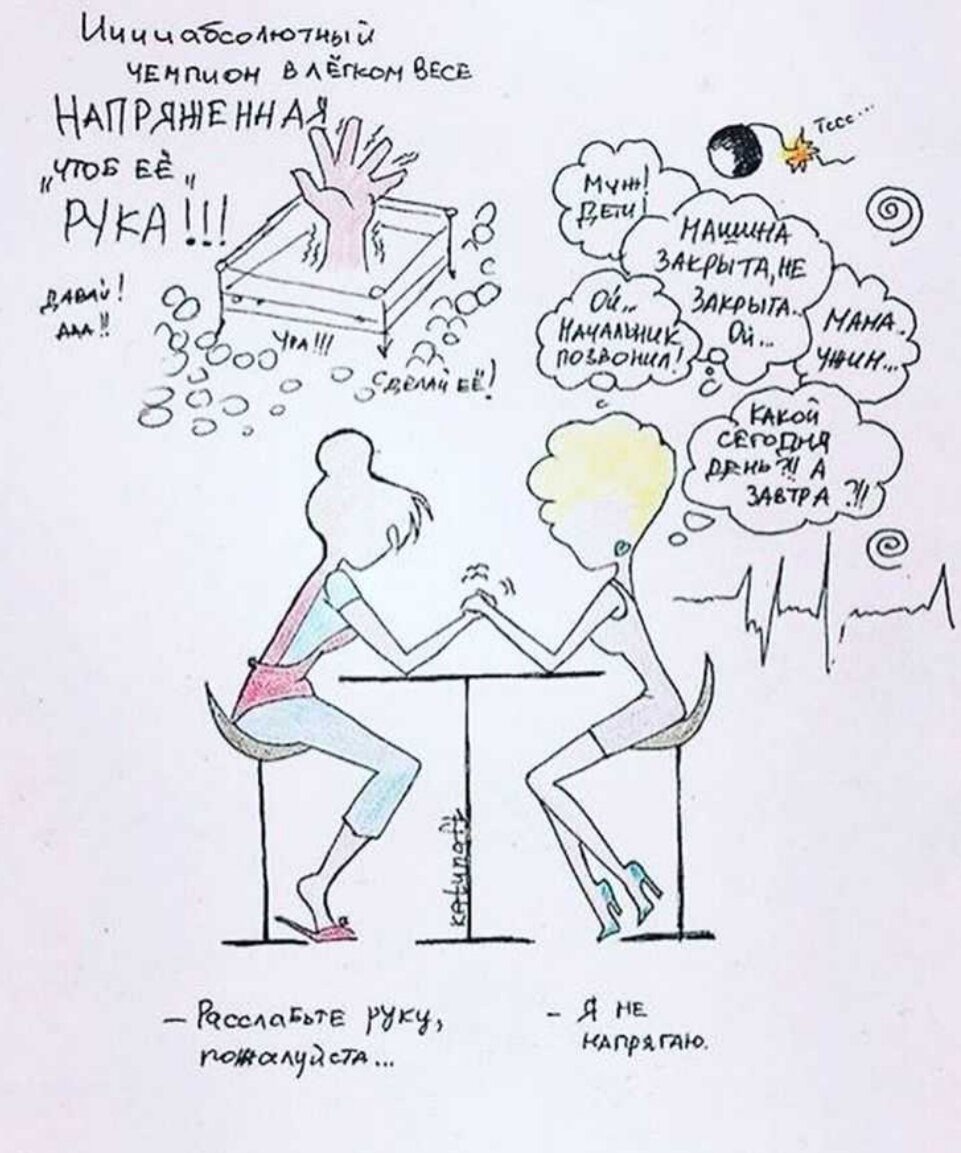 Ииииабсолютный
чемпион в лёгком весе
НАПРЯЖЕННАЯ
"чтоб её"
РУКА!!!
ДАВАЙ!
ААА!!
УРА!!!
СДЕЛАЙ ЕЁ!
Тссс...
МУЖ!
ДЕТИ!
МАШИНА
ЗАКРЫТА, НЕ
ЗАКРЫТА..
Ой...
Ой...
НАЧАЛЬНИК
ПОЗВОНИЛ!
МАМА..
УЖИН...
КАКОЙ
СЕГОДНЯ
ДЕНЬ?!! А
ЗАВТРА?!!
katunaft
– Расслабьте руку,
пожалуйста...
– Я НЕ
НАПРЯГАЮ.